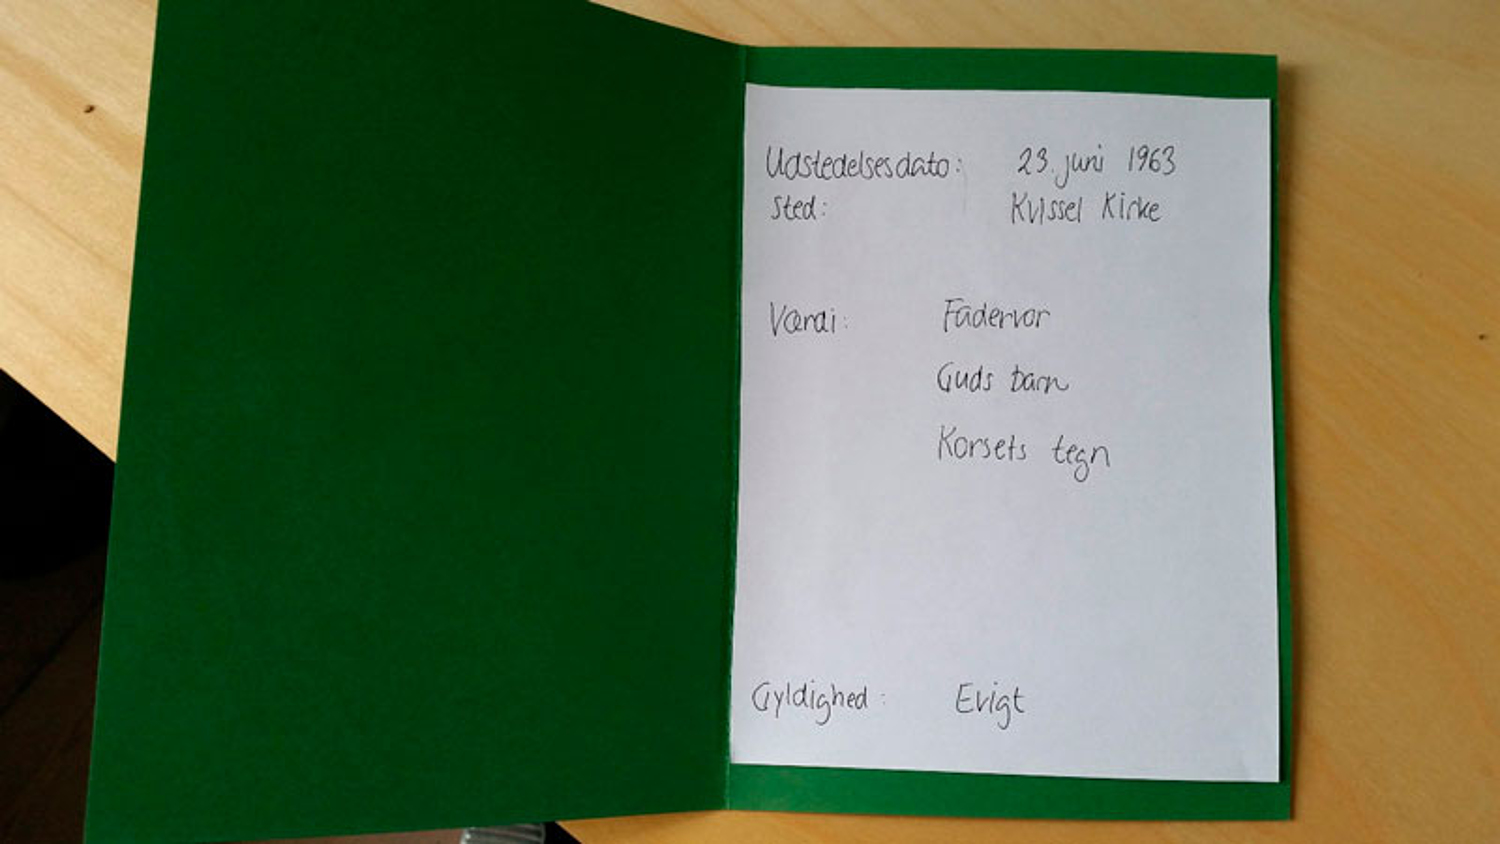 Udstedelsesdato: 23. juni 1963
Sted: Kvissel Kirke
Værdi: Fadervor
Guds barn
Korsets tegn
Gyldighed: Evigt